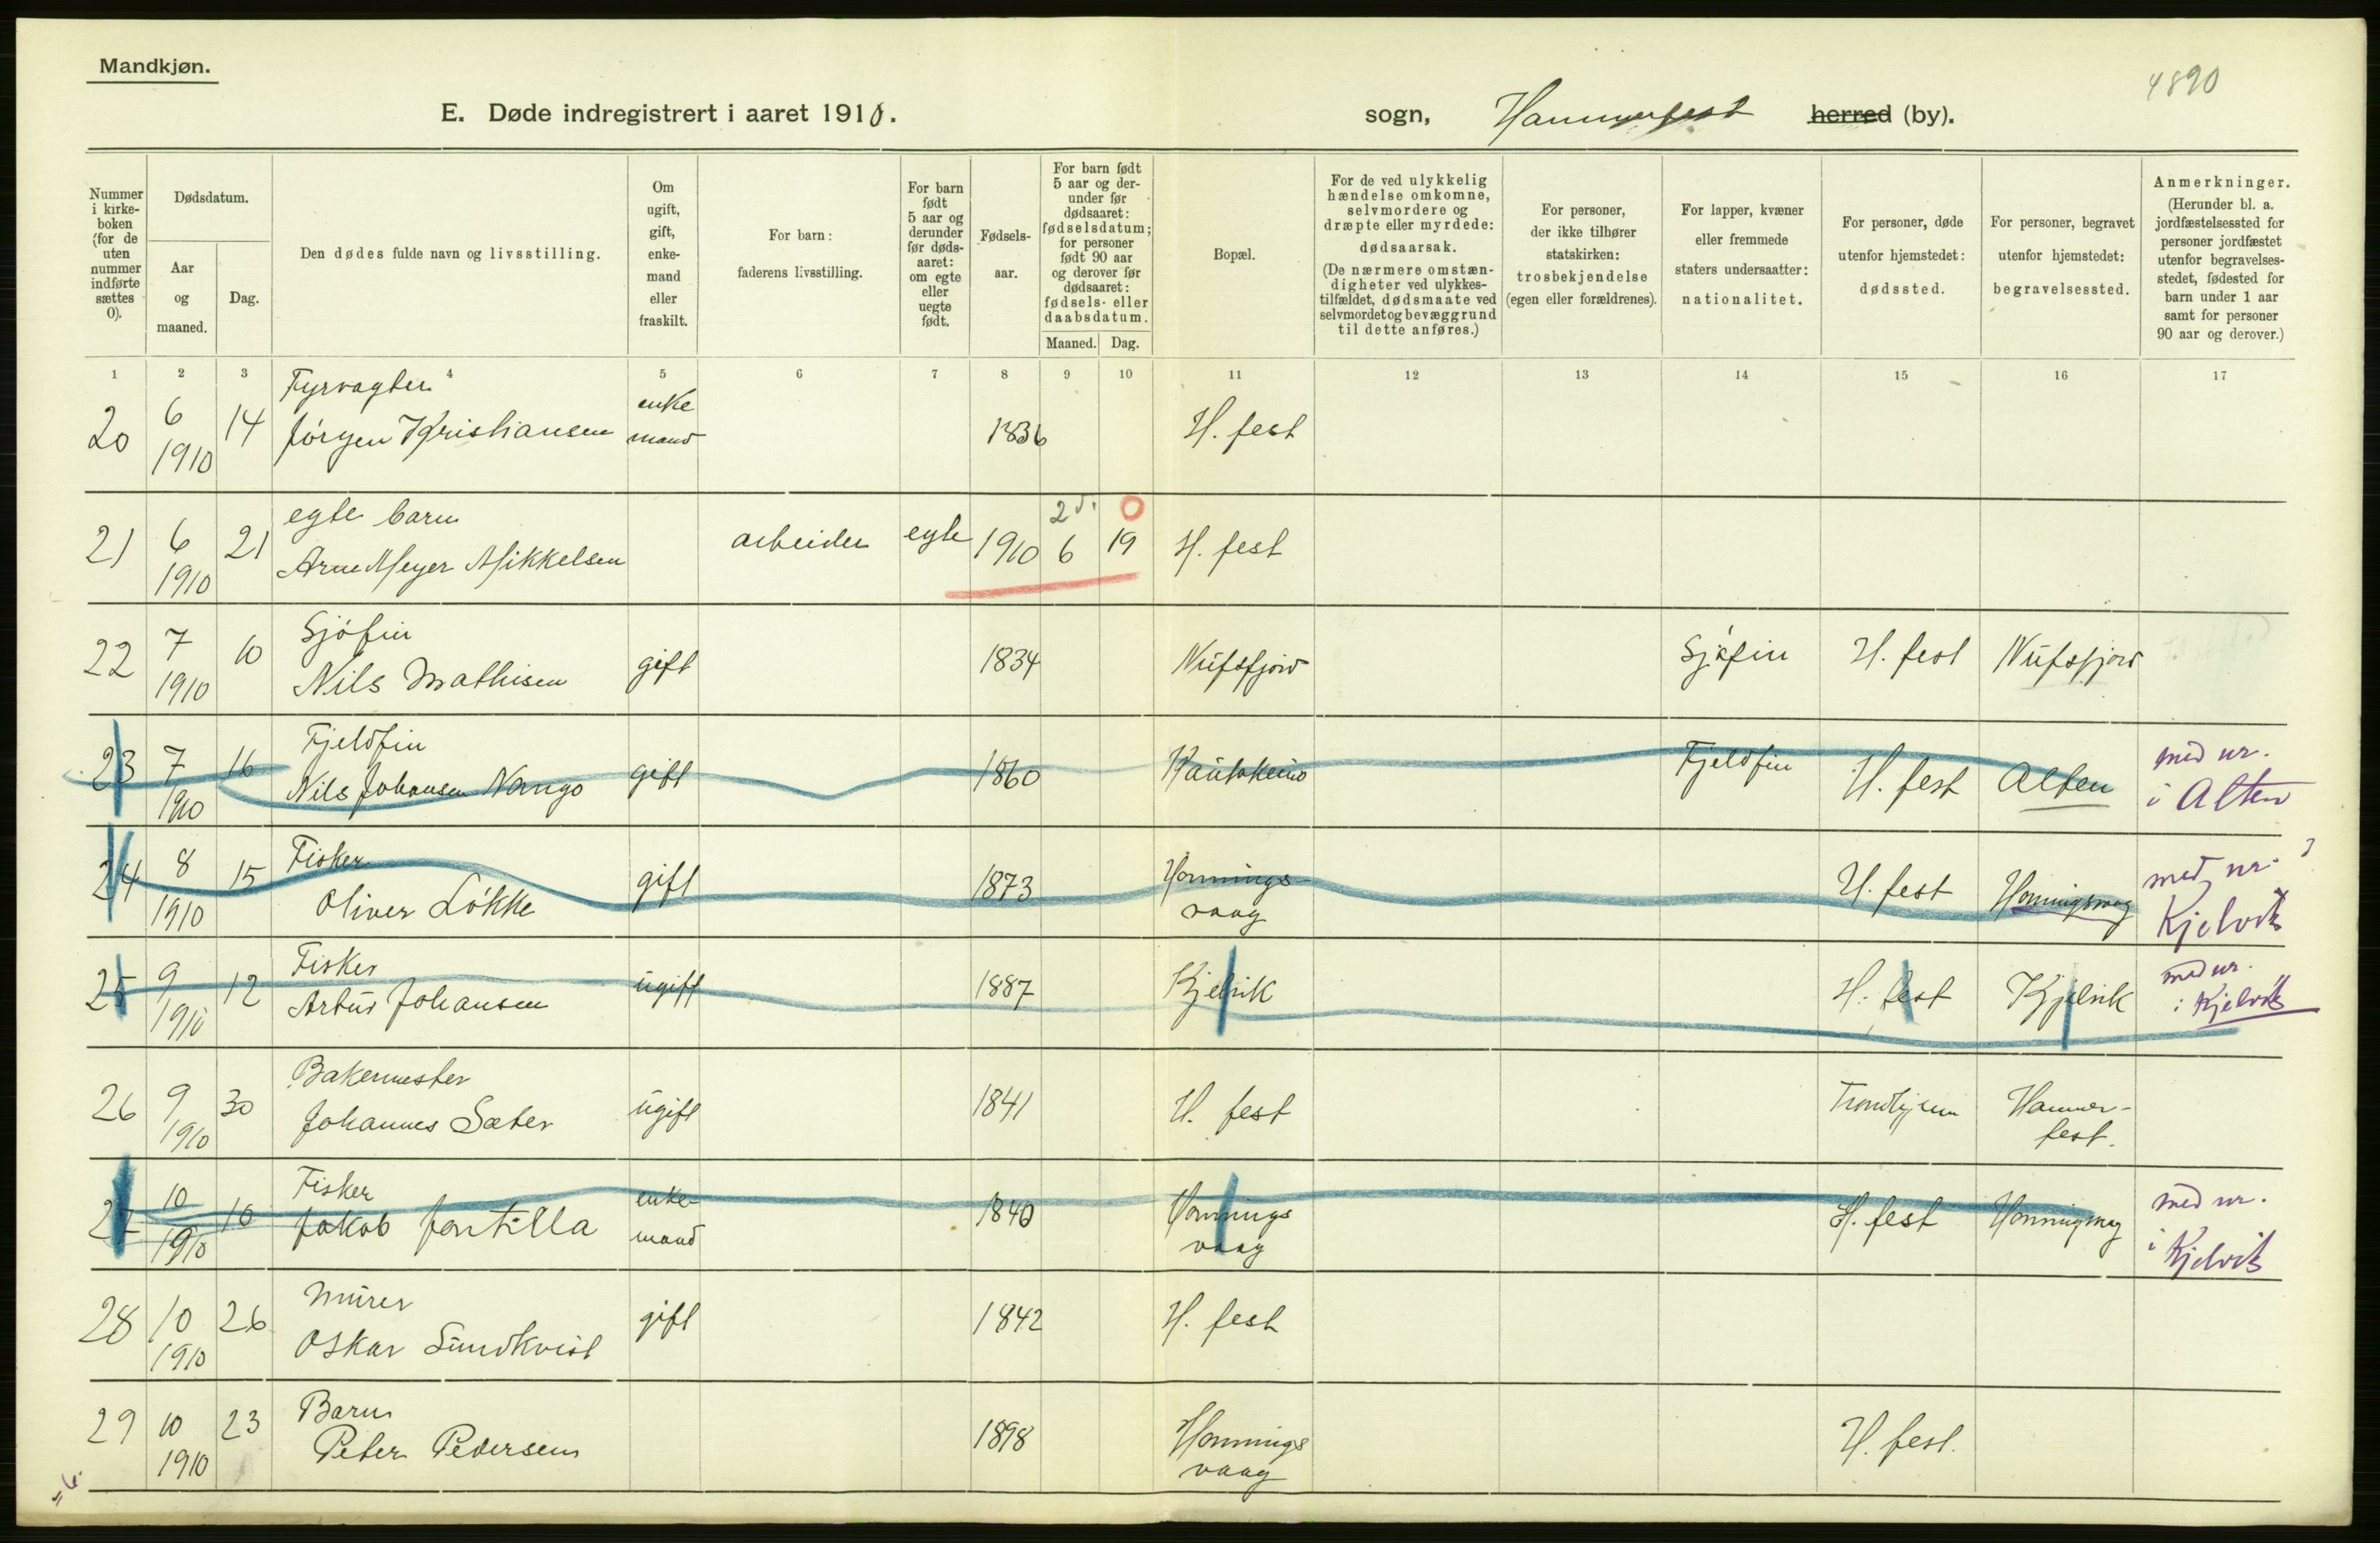 Mandkjøn.
4890
E. Døde indregistrert i aaret 1910.
sogn, Hammerfest herred (by).
Nummer i kirke-boken (for de uten nummer indførte sættes 0).
Dødsdatum.
Aar og maaned.
Dag.
Den dødes fulde navn og livsstilling.
Om ugift, gift, enke-mand eller fraskilt.
For barn: faderens livsstilling.
For barn født 5 aar og derunder før døds-aaret: om egte eller uegte født.
Fødsels-aar.
For barn født 5 aar og der-under før dødsaaret: fødselsdatum; for personer født 90 aar og derover før dødsaaret: fødsels- eller daabsdatum.
Maaned. Dag.
Bopæl.
For de ved ulykkelig hændelse omkomne, selvmordere og dræpte eller myrdede: dødsaarsak. (De nærmere omstæn-digheter ved ulykkes-tilfældet, dødsmaate ved selvmordet og bevæggrund til dette anføres.)
For personer, der ikke tilhører statskirken: trosbekjendelse (egen eller forældrenes).
For lapper, kvæner eller fremmede staters undersaatter: nationalitet.
For personer, døde utenfor hjemstedet: dødssted.
For personer, begravet utenfor hjemstedet: begravelsessted.
Anmerkninger. (Herunder bl. a. jordfæstelsessted for personer jordfæstet utenfor begravelses-stedet, fødested for barn under 1 aar samt for personer 90 aar og derover.)
1 2 3 4 5 6 7 8 9 10 11 12 13 14 15 16 17
20 6 1910 14 Fyrvagter Jörgen Kristiansen enke mand 1836 H. fest
21 6 1910 21 egte barn Arne Meyer Mikkelsen arbeider egte 1910 6 19 H. fest
2 d. 0
22 7 1910 10 Sjöfin Nils Mathisen gift 1834 Nüfsfjord Sjöfin H. fest Nüfsfjord
23 7 1910 16 Fjeldfin Nils Johansen Nango gift 1860 Kautokeino Fjeldfin H. fest Alten med nr. i Alten
24 8 1910 15 Fisker Oliver Løkke gift 1873 Honnings-vaag H. fest Honningsvaag med nr. i Kjelvik
25 9 1910 12 Fisker Artur Johansen ugift 1887 Kjelvik H. fest Kjelvik med nr. i Kjelvik
26 9 1910 30 Bakermester Johannes Sæter ugift 1841 H. fest Trondhjem Hammer-fest.
27 10 1910 16 Fisker Jakob Jontilla enke-mand 1840 Honnings vaag H. fest Honningsvag med nr. i Kjelvik
28 10 1910 26 Murer Oskar Sundkvist gift 1842 H. fest
29 10 1910 23 Barn Peter Pedersen 1898 Honnings vaag H. fest.